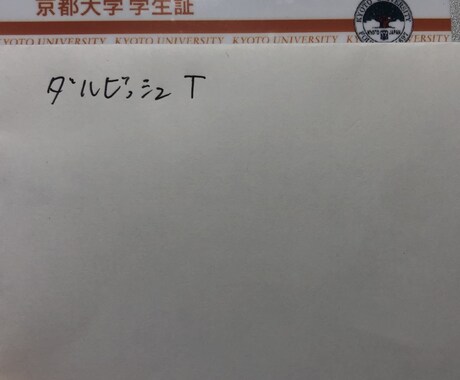 京都大学 学生証
KYOTO UNIVERSITY KYOTO UNIVERSITY KYOTO UNIVERSITY KYOTO UNIVERSITY
KYOTO JAPAN
ダルビッシュ T